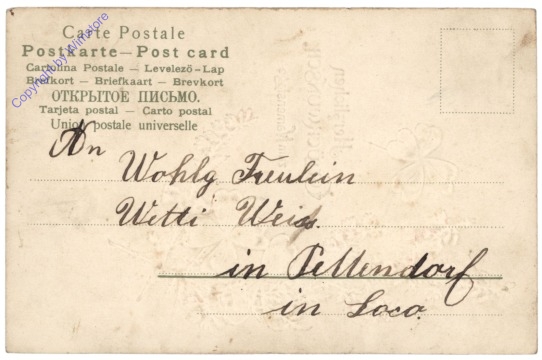 Carte Postale
Postkarte — Post card
Cartolina Postale — Levelező-Lap
Brefkort — Briefkaart — Brevkort
ОТКРЫТОЕ ПИСЬМО.
Tarjeta postal — Carto postal
Union postale universelle
Copyright by Winstore
An
Wohlg Freulein
Wetti Weiss.
in Pellendorf
in Loco.